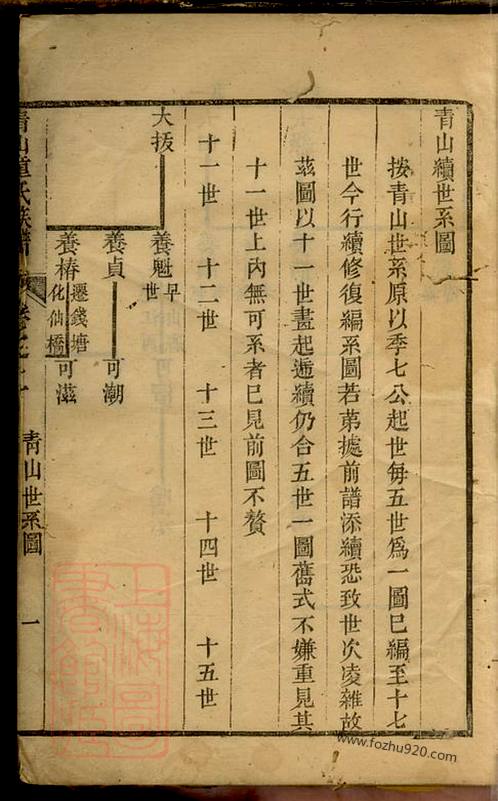 青山續世系圖
按青山世系原以季七公起世每五世爲一圖已編至十七
世今行續修復編系圖若第據前譜添續恐致世次凌雜故
茲圖以十一世畫起遞續仍合五世一圖舊式不嫌重見其
十一世上內無可系者已見前圖不贅
十一世 十二世 十三世 十四世 十五世
大拔
養魁 早世
養貞 可潮
養椿 遷錢塘化仙橋 可滋
青山 氏族譜 卷之 青山世系圖 一
上海圖書館藏
www.fozhu920.com